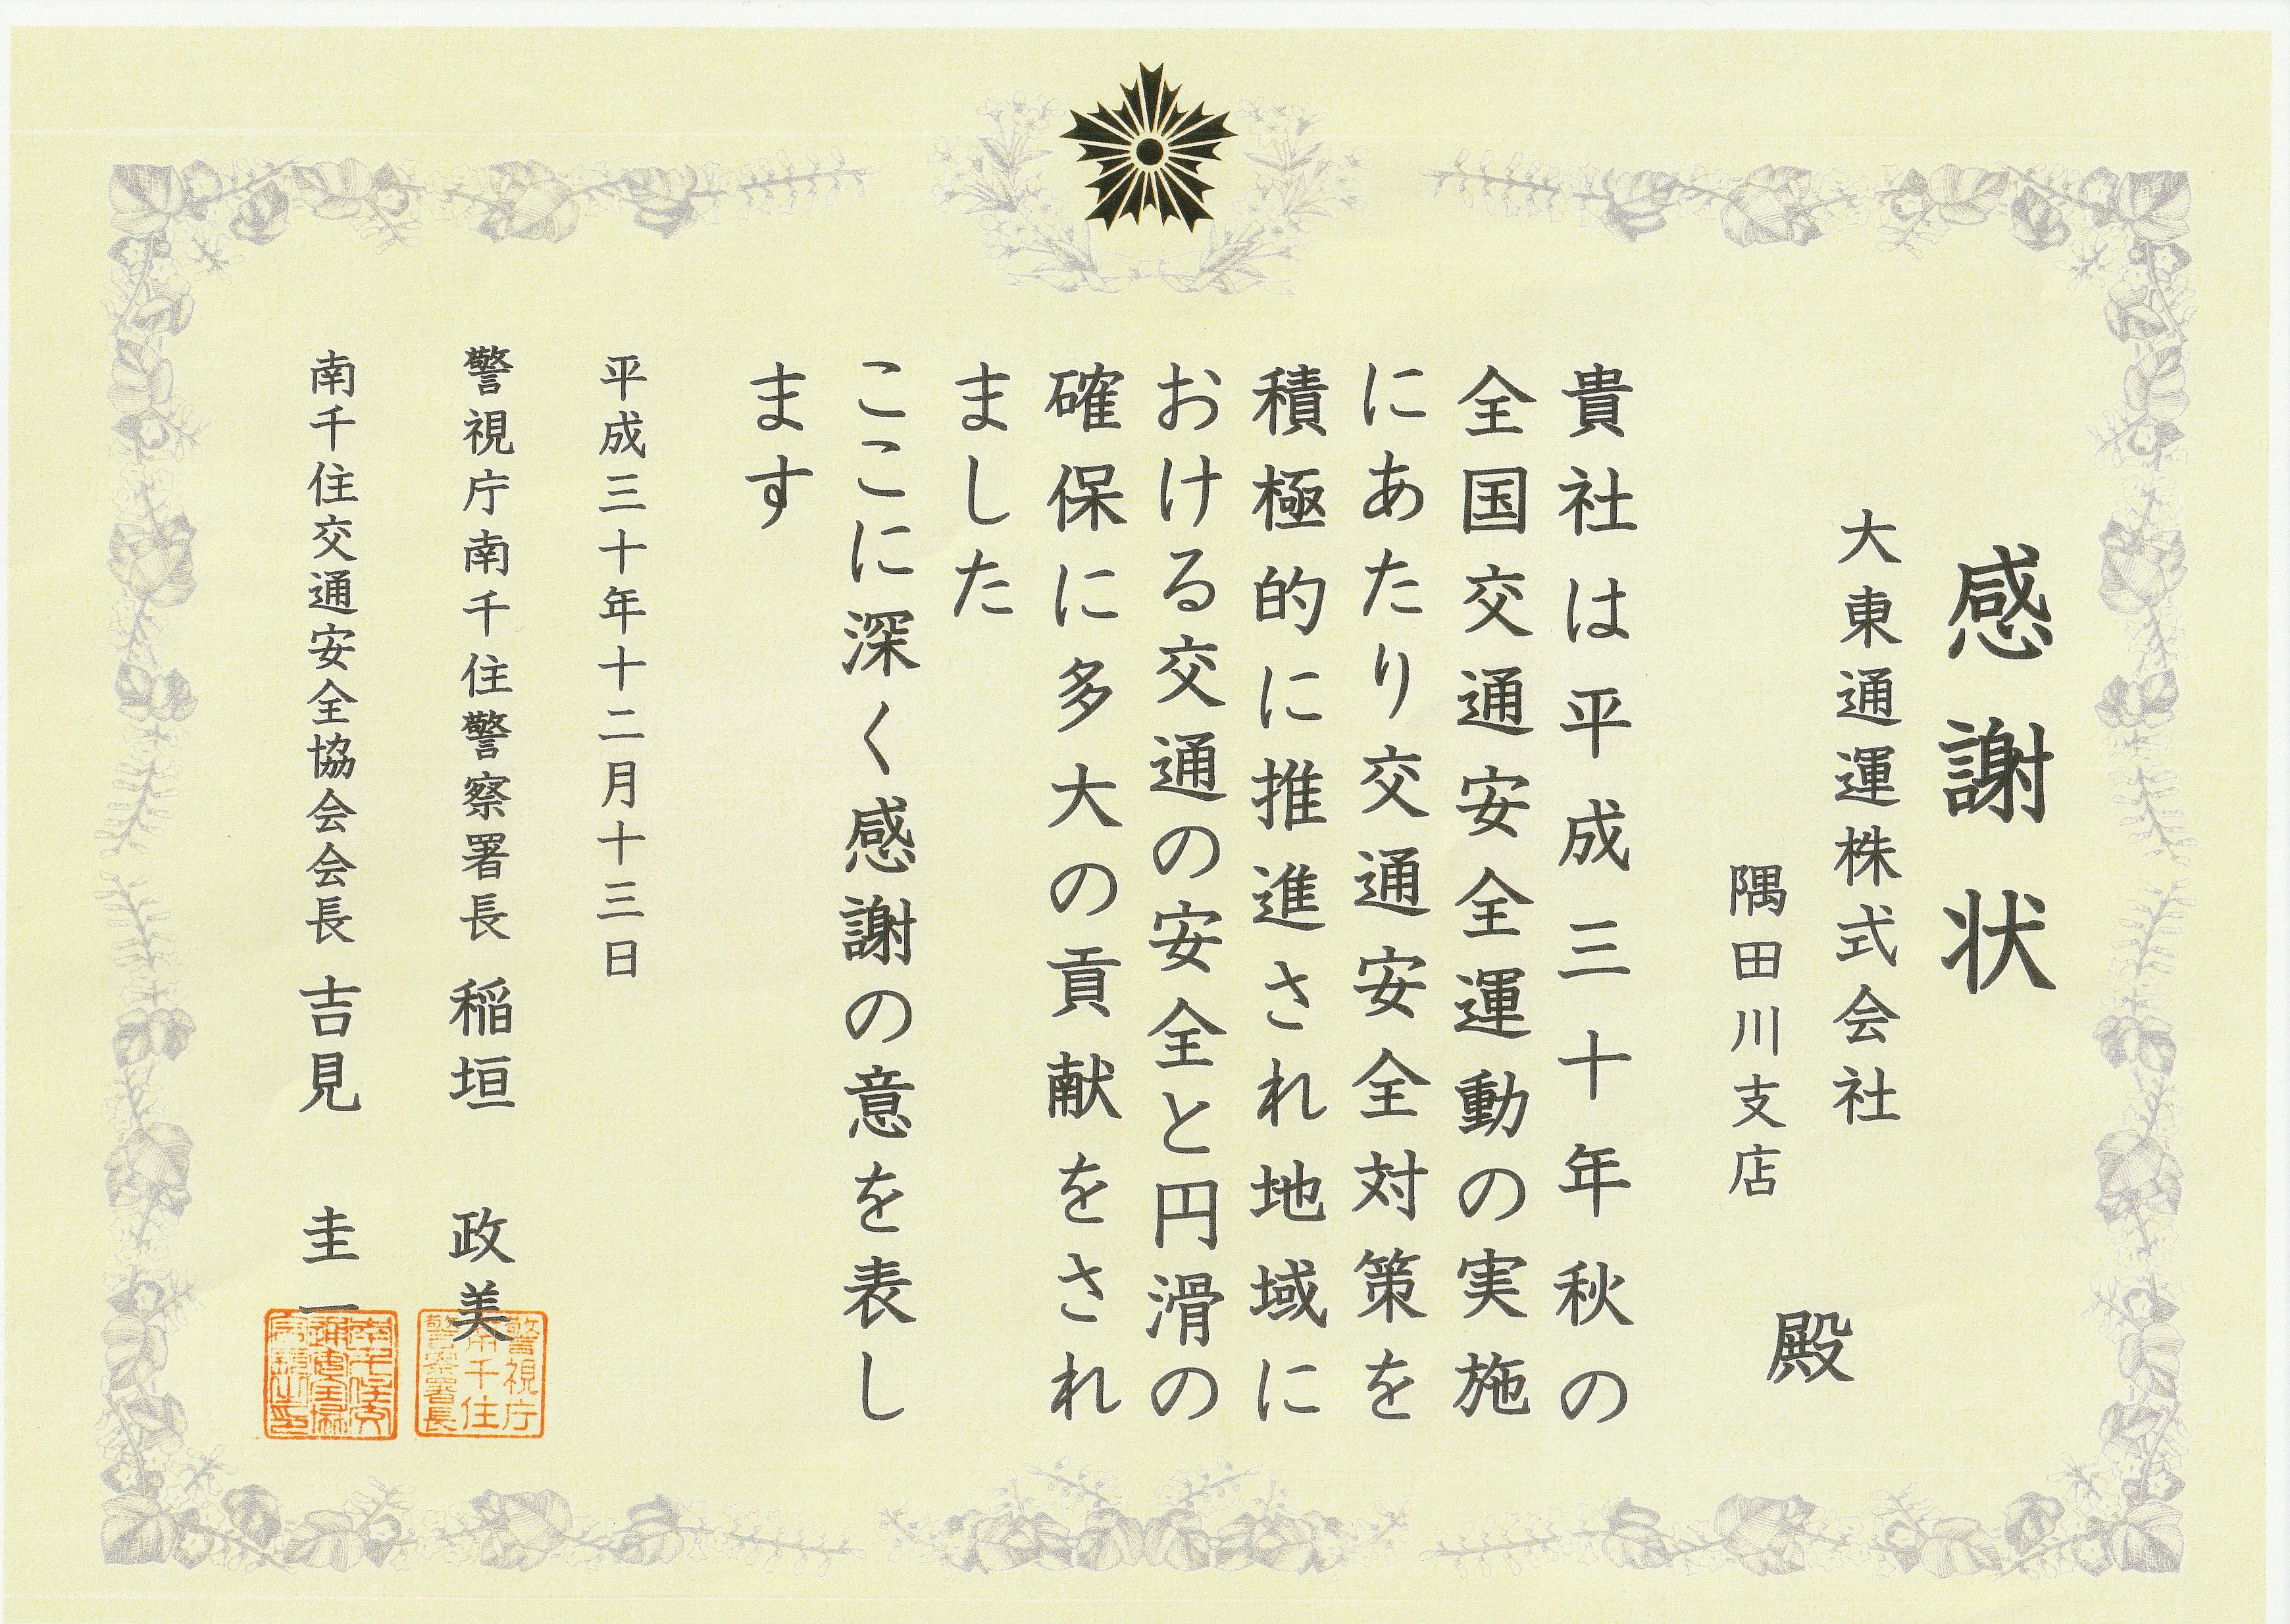 感謝状
大東通運株式会社
隅田川支店
殿
貴社は平成三十年秋の
全国交通安全運動の実施
にあたり交通安全対策を
積極的に推進され地域に
おける交通の安全と円滑の
確保に多大の貢献をされ
ました
ここに深く感謝の意を表し
ます
平成三十年十二月十三日
警視庁南千住警察署長 稲垣 政美
警視庁
南千住
警察署長
南千住交通安全協会会長 吉見 圭一